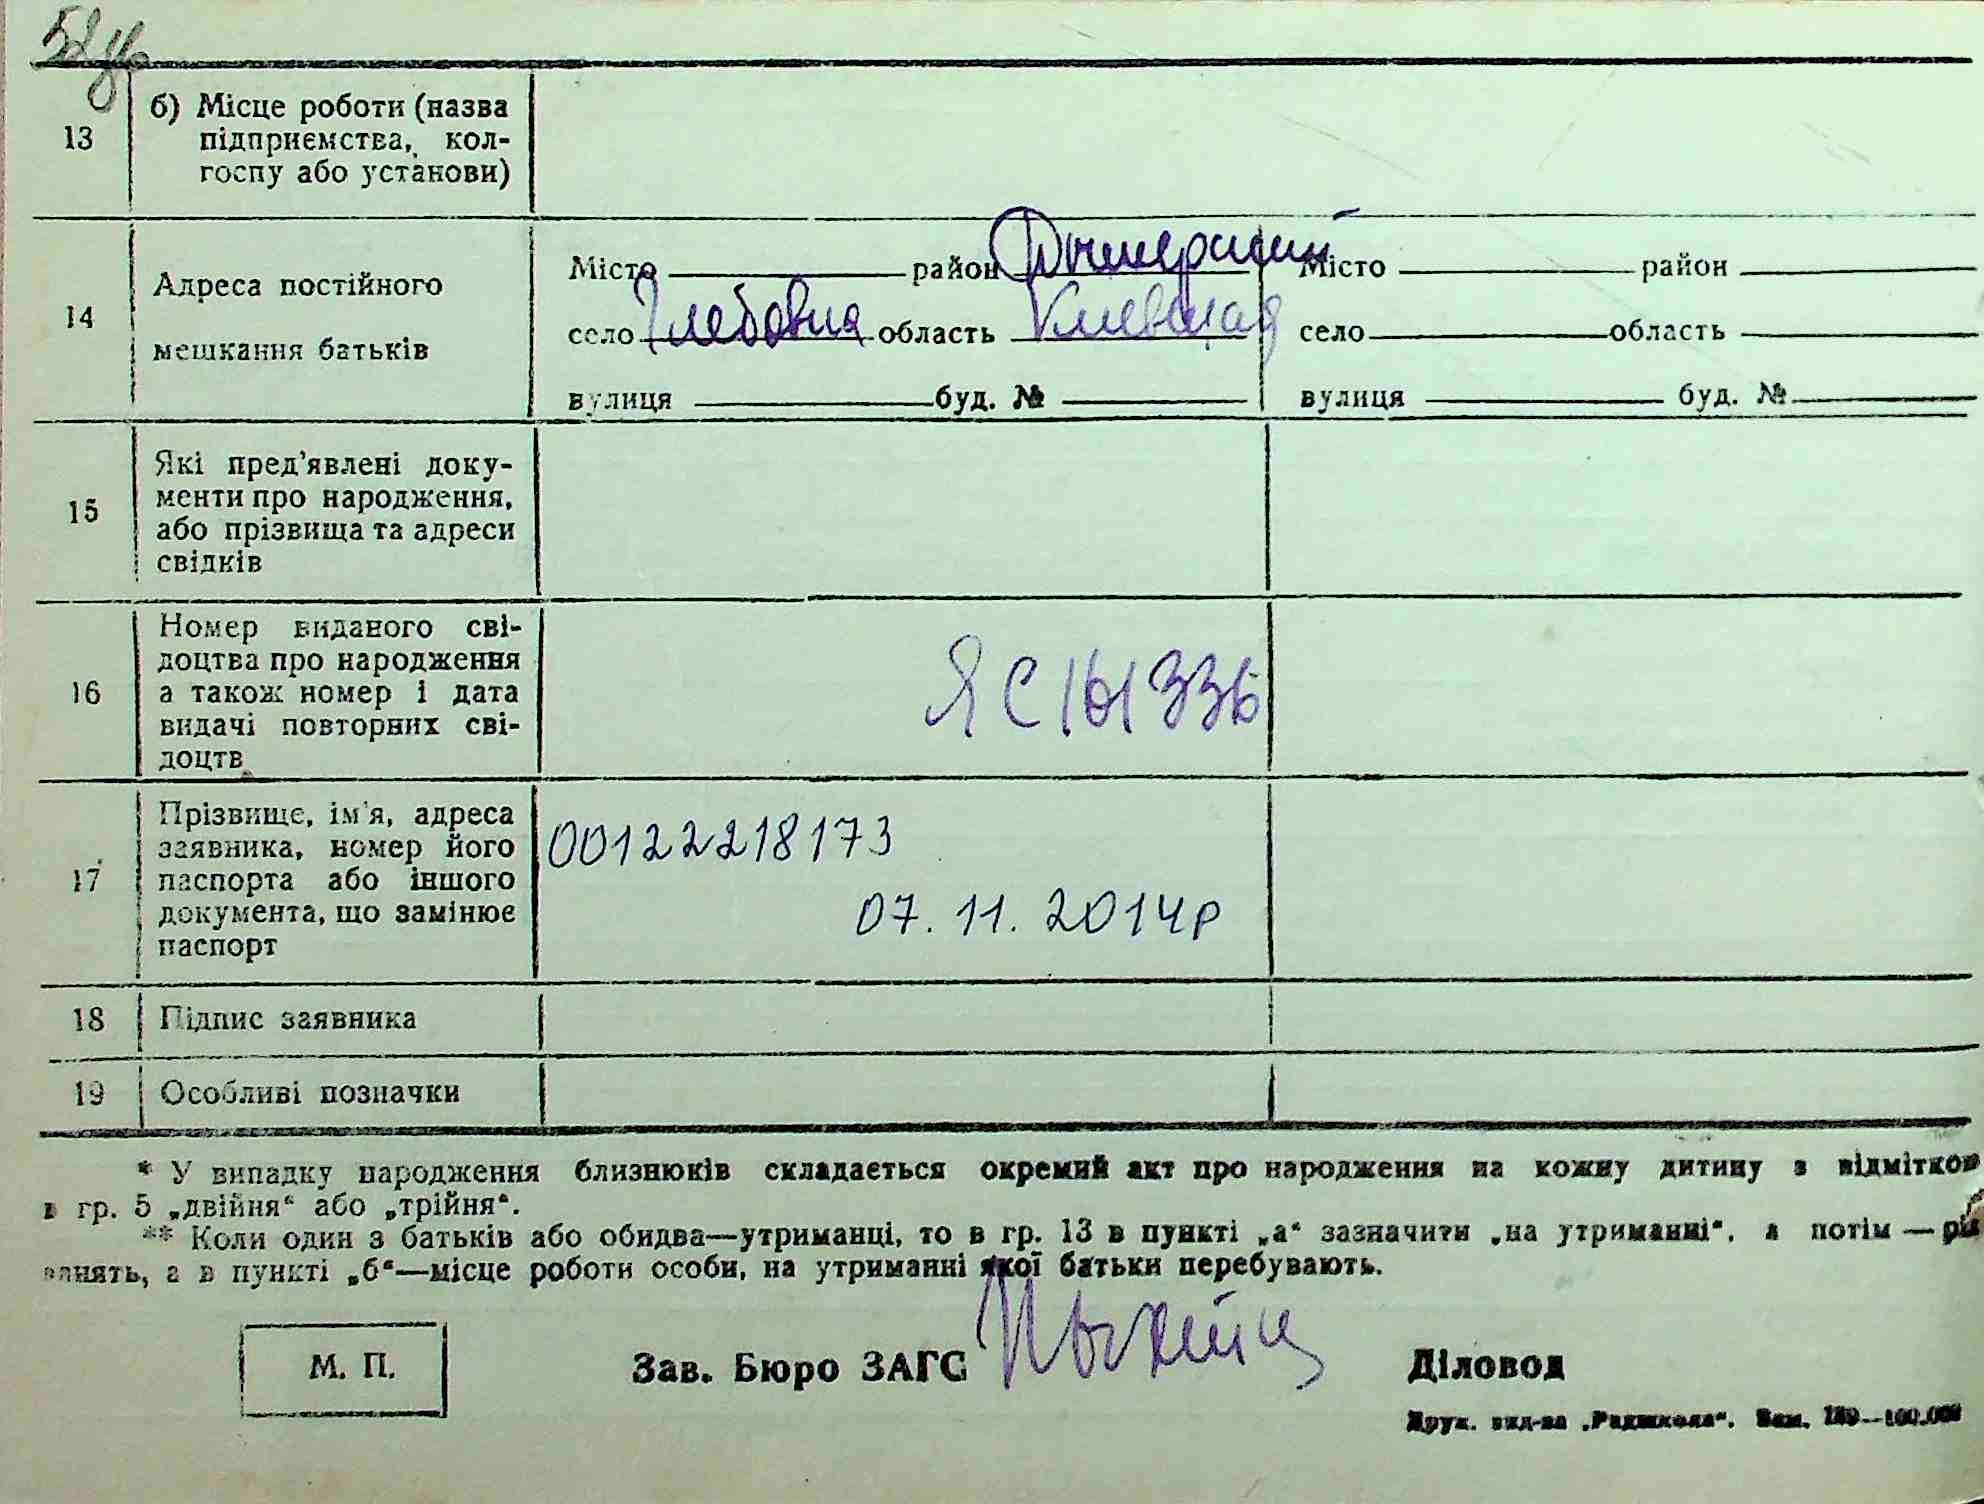 13
б) Місце роботи (назва
підприємства, кол-
госпу або установи)
14
Адреса постійного
мешкання батьків
Місто район Дымерский Місто район
село Глебовка область Киевская село область
вулиця буд. № вулиця буд. №
15
Які пред’явлені доку-
менти про народження,
або прізвища та адреси
свідків
16
Номер виданого сві-
доцтва про народження
а також номер і дата
видачі повторних сві-
доцтв
ЯС 161336
17
Прізвище, ім’я, адреса
заявника, номер його
паспорта або іншого
документа, що замінює
паспорт
00122218173
07. 11. 2014р
18 Підпис заявника
19 Особливі позначки
* У випадку народження близнюків складається окремий акт про народження на кожну дитину з відміткою
в гр. 5 „двійня“ або „трійня“.
** Коли один з батьків або обидва—утриманці, то в гр. 13 в пункті „а“ зазначити „на утриманні“, а потім — рід
занять, а в пункті „б“—місце роботи особи, на утриманні якої батьки перебувають.
М. П.
Зав. Бюро ЗАГС
Діловод
Друк. вид-ва „Радшкола“. Зам. –100.000